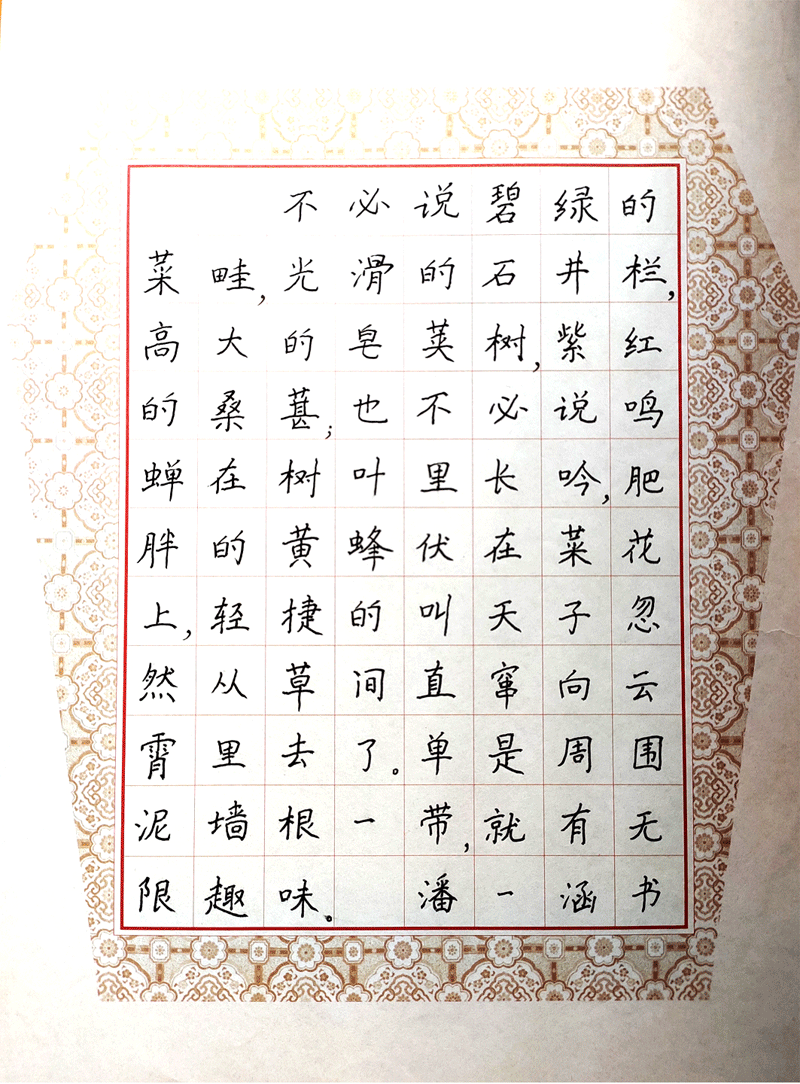 不必说碧绿的
菜畦,光滑的石井栏,
高大的皂荚树,紫红
的桑葚;也不必说鸣
蝉在树叶里长吟,肥
胖的黄蜂伏在菜花
上,轻捷的叫天子忽
然从草间直窜向云
霄里去了。单是周围
泥墙根一带,就有无
限趣味。 潘一涵书